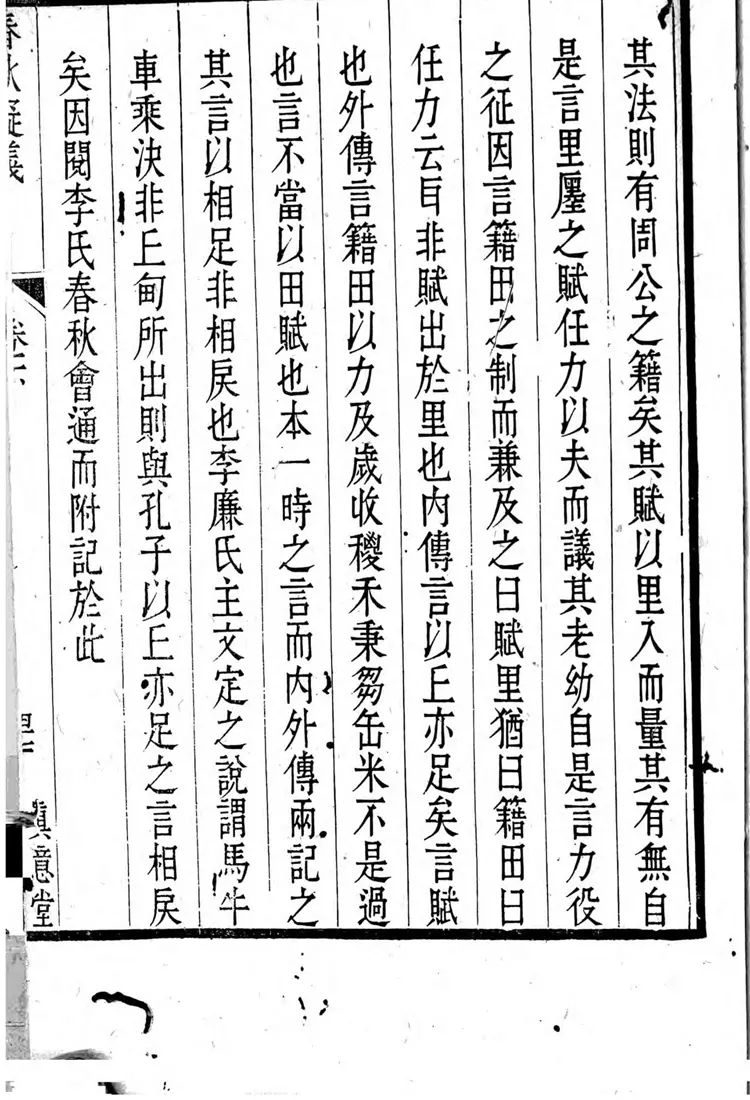 其法則有周公之籍矣其賦以里入而量其有無自
是言里廛之賦任力以夫而議其老幼自是言力役
之征因言籍田之制而兼及之曰賦里猶曰籍田曰
任力云㠯非賦出於里也内傳言以丘亦足矣言賦
也外傳言籍田以力及歲收稯禾秉芻缶米不是過
也言不當以田賦也本一時之言而内外傳兩記之
其言以相足非相戾也李廉氏主文定之說謂馬牛
車乘決非丘甸所出則與孔子以丘亦足之言相戾
矣因閱李氏春秋會通而附記於此
春秋疑義
眞意堂